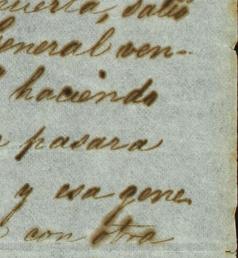 puerta, salió
General ven-
haciendo
pasara
y esa gene
con otra